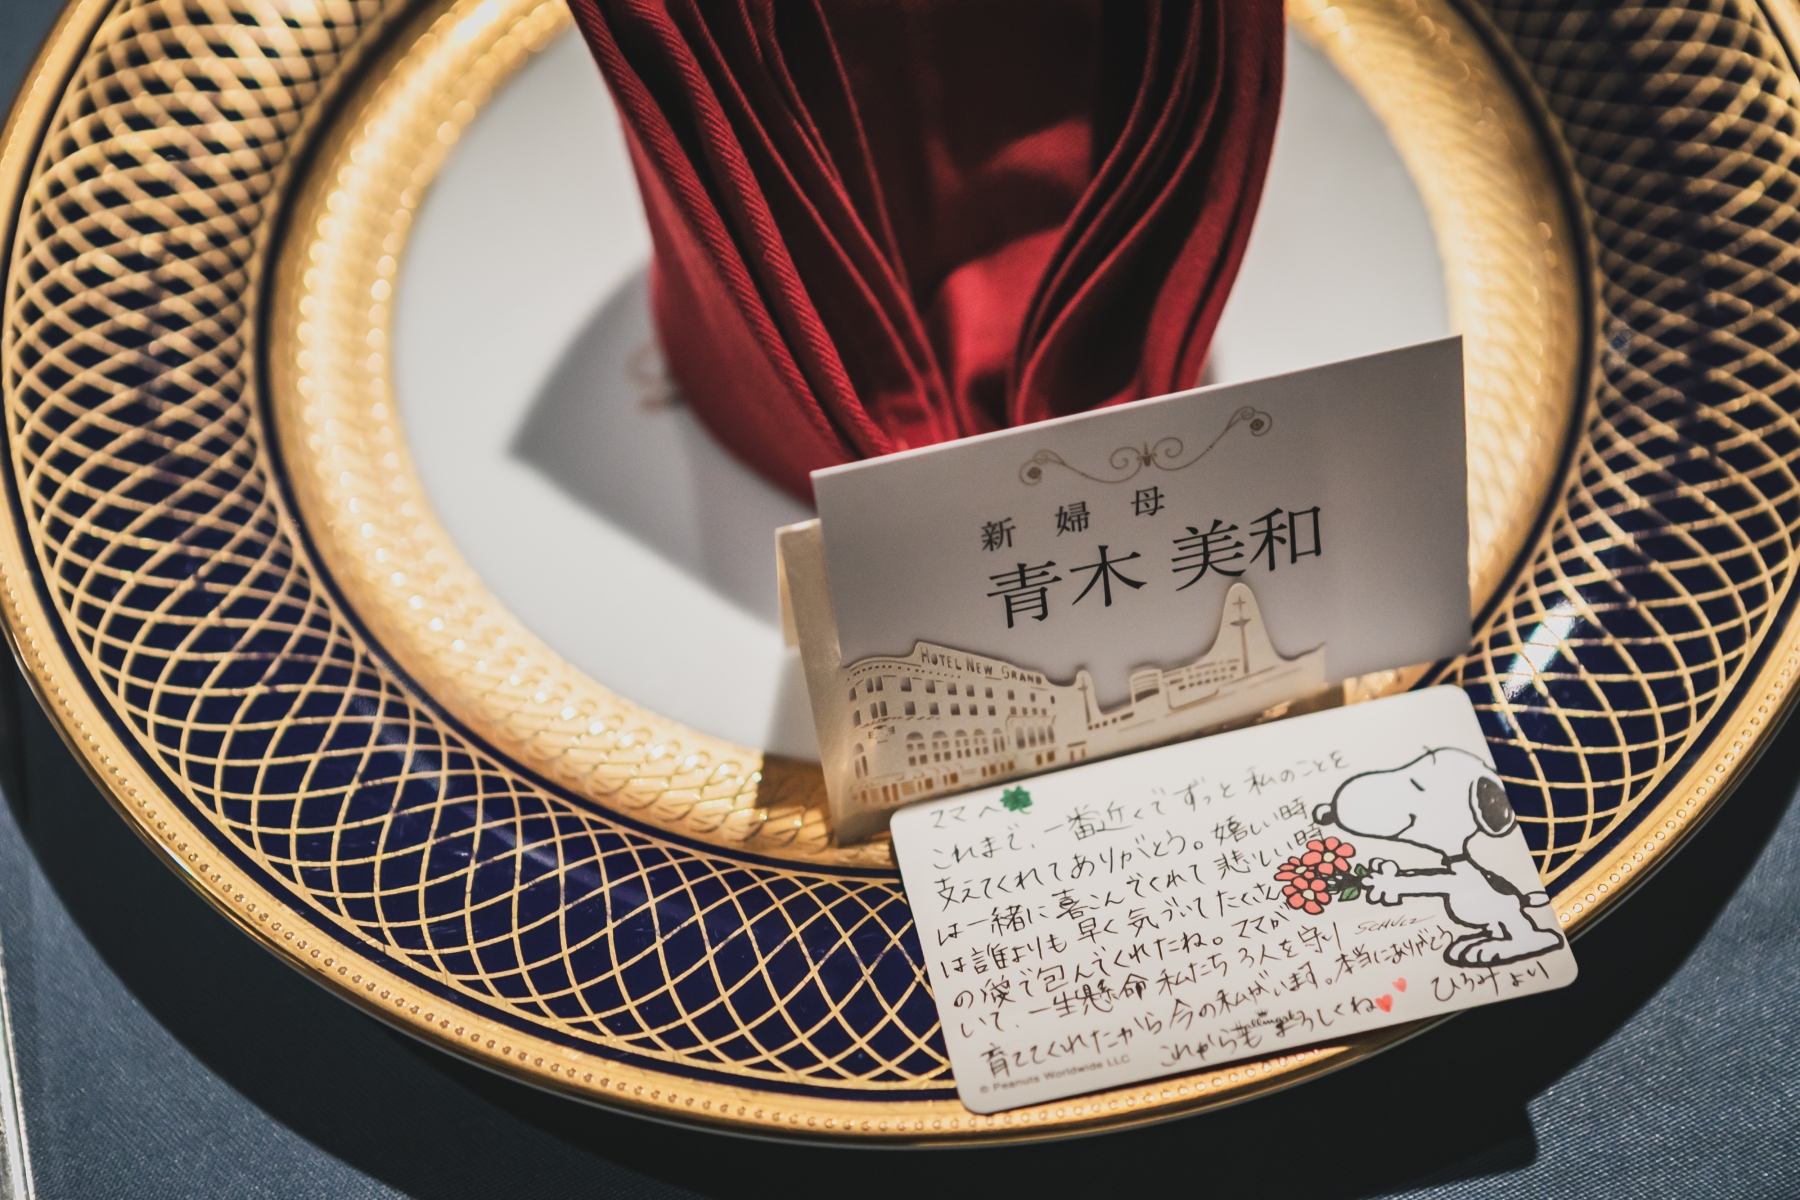 新婦母
青木 美和
HOTEL NEW GRAND
ママへ
これまで、一番近くでずっと私のことを
支えてくれてありがとう。嬉しい時
は一緒に喜こんでくれて悲しい時
は誰よりも早く気づいてたくさん
の愛で包んでくれたね。ママが
いて、一生懸命私たち3人を守り
育ててくれたから今の私がいます。本当にありがとう
これからもよろしくね
ひろみより
SCHULZ
© Peanuts Worldwide LLC